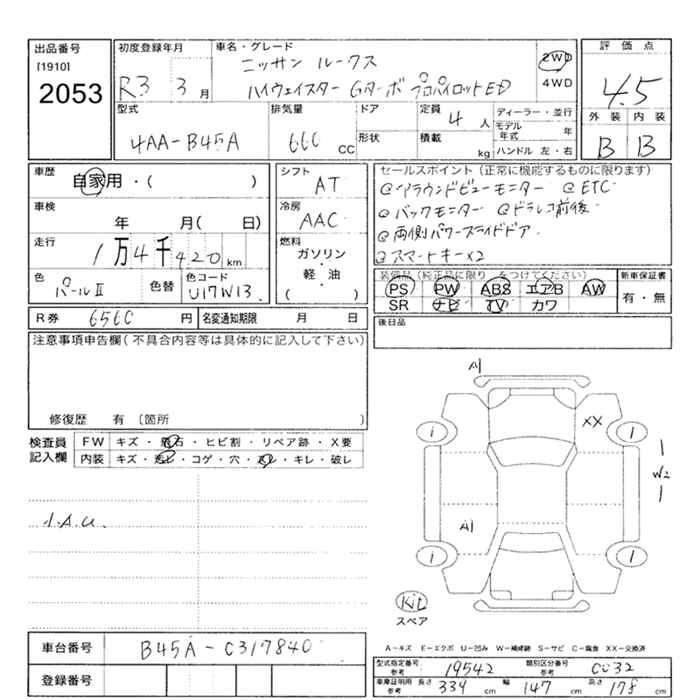 出品番号
[1910]
2053
初度登録年月
R3 3 月
車名・グレード
ニッサン ルークス
ハイウェイスター Gターボ プロパイロットED
2WD
4WD
評価点
4.5
外装 内装
B B
型式
4AA-B45A
排気量
660 CC
ドア
形状
定員
4 人
積載
kg
ディーラー・並行
モデル年式 年
ハンドル 左・右
車歴
自家用・( )
車検
年 月( 日)
走行
1万4千420 km
色
パールⅡ
色替
色コード
U17W13
シフト
AT
冷房
AAC
燃料
ガソリン
軽・油
( )
セールスポイント(正常に機能するものに限ります)
@アラウンドビューモニター @ETC
@バックモニター @ドラレコ前後
@両側パワースライドドア
@スマートキー×2
装備品(純正品に限り をつけてください)
PS PW ABS エアB AW
SR ナビ TV カワ
新車保証書
有・無
R券 6560 円
名変通知期限 月 日
後日品
注意事項申告欄(不具合内容等は具体的に記入して下さい)
修復歴 有 [箇所 )
検査員
記入欄
FW キズ・飛石・ヒビ割・リペア跡・X要
内装 キズ・汚レ・コゲ・穴・スレ・キレ・破レ
A1
XX
1 1
W2
A1
1 1
Kit
スペア
A-キズ E-エクボ U-凹み W-補修跡 S-サビ C-腐食 XX-交換済
車台番号 B45A-C317840
登録番号
型式指定番号 参考 19542
類別区分番号 参考 0032
車庫証明用 参考 長さ 339 cm 幅 147 cm 高さ 178 cm